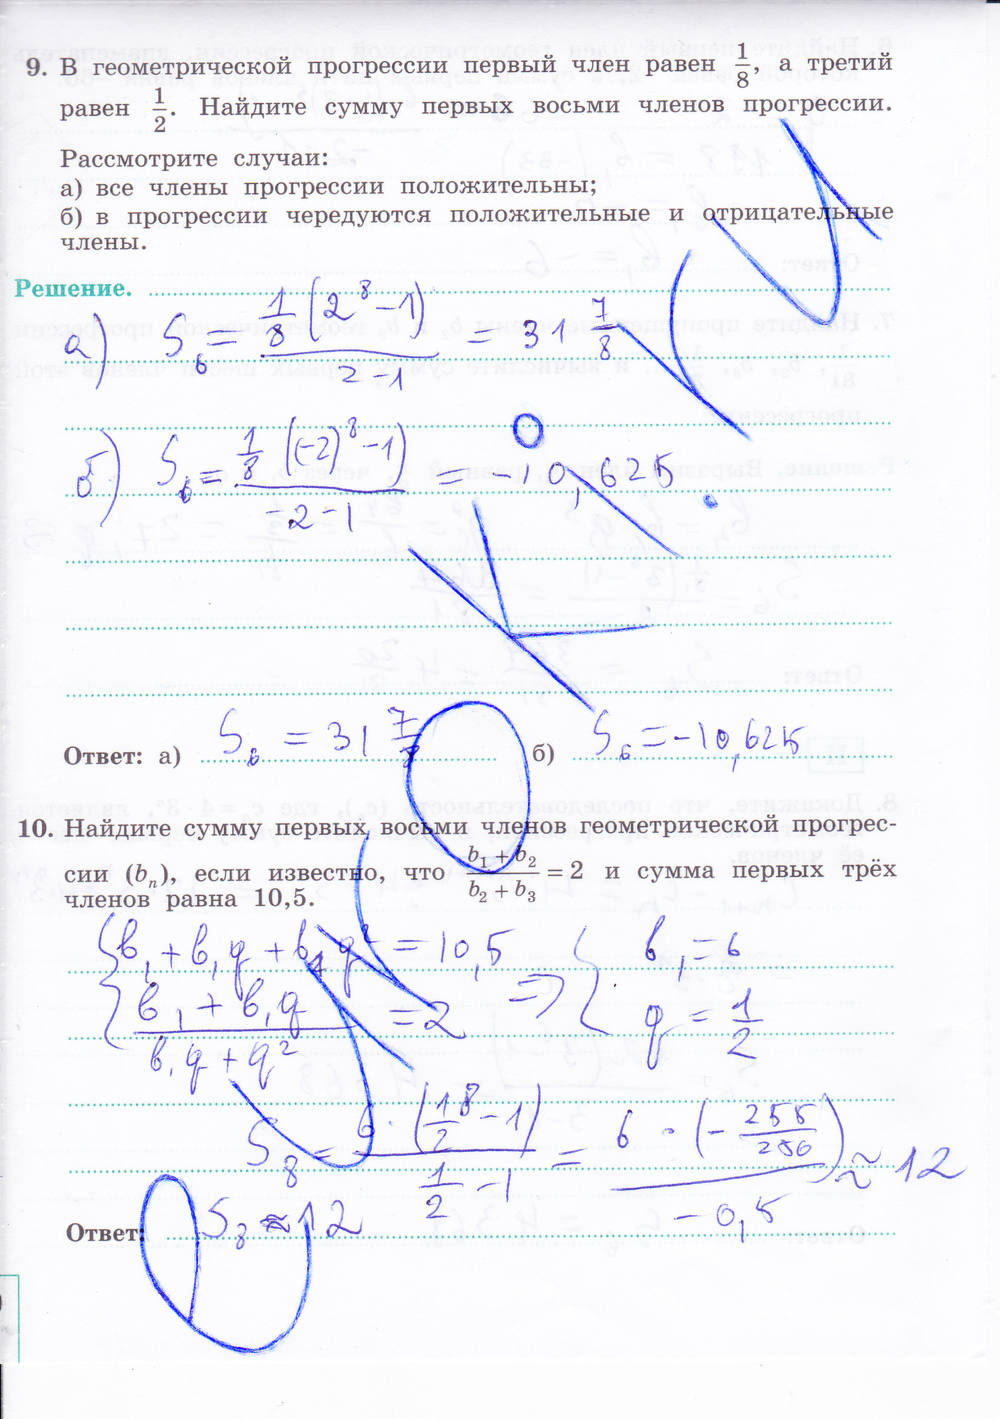 9. В геометрической прогрессии первый член равен 1/8, а третий
равен 1/2. Найдите сумму первых восьми членов прогрессии.
Рассмотрите случаи:
а) все члены прогрессии положительны;
б) в прогрессии чередуются положительные и отрицательные
члены.
Решение.
а) S₆ = (1/8 (2⁸ − 1))/(2 − 1) = 31 7/8
б) S₆ = (1/8 ((−2)⁸ − 1))/(−2 − 1) = −10,625
Ответ: а) S₈ = 31 7/8 б) S₆ = −10,625
10. Найдите сумму первых восьми членов геометрической прогрес-
сии (bₙ), если известно, что (b₁ + b₂)/(b₂ + b₃) = 2 и сумма первых трёх
членов равна 10,5.
{ b₁ + b₁q + b₁q² = 10,5 ⇒ { b₁ = 6
(b₁ + b₁q)/(b₁q + q²) = 2 q = 1/2
S₈ = (6 · (1/2⁸ − 1))/(1/2 − 1) = (6 · (−255/256))/(−0,5) ≈ 12
Ответ: S₈ ≈ 12